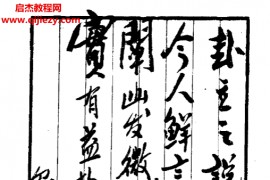 启杰易师网
www.qijiezy.com
卦主之說
今人鮮言
闡幽发微
實有益